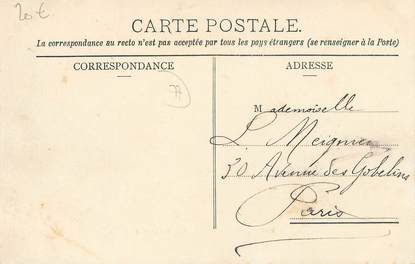 20€
CARTE POSTALE.
La correspondance au recto n'est pas acceptée par tous les pays étrangers (se renseigner à la Poste)
CORRESPONDANCE
ADRESSE
77
Mademoiselle
L. Meignien
30 Avenue des Gobelins
Paris